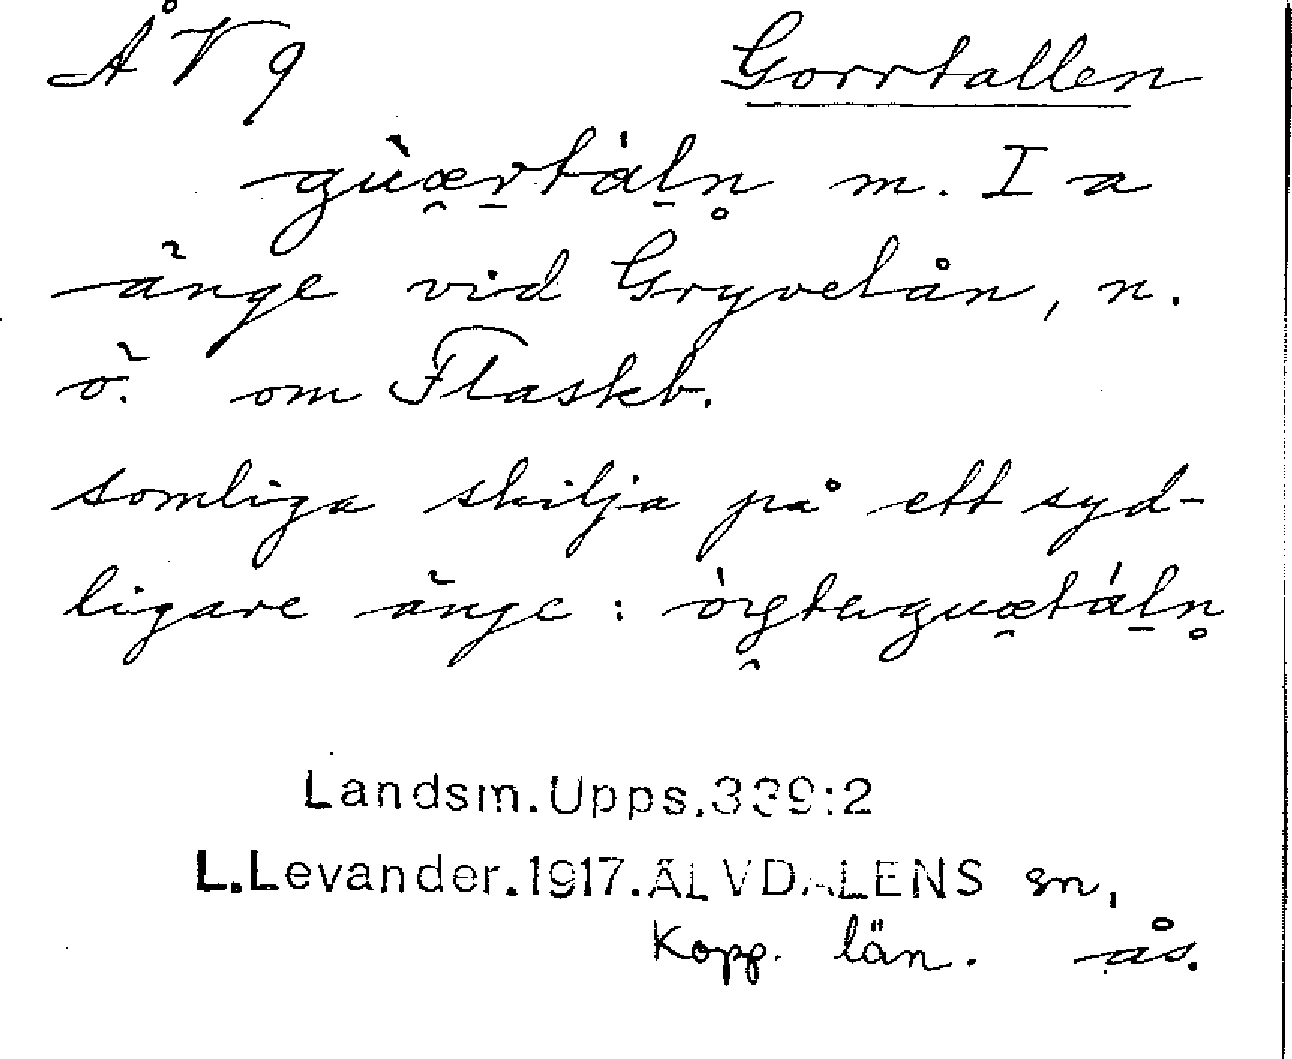 ÅV9 Gorrtallen
gùæ̯r̠tàl̠n̥ m. I a
änge vid Gryvelån, n.
ö. om Flaskb.
somliga skilja på ett syd-
ligare änge:
Landsm.Upps.339:2
L.Levander.1917.ÄLVDALENS sn,
Kopp. län. ås.